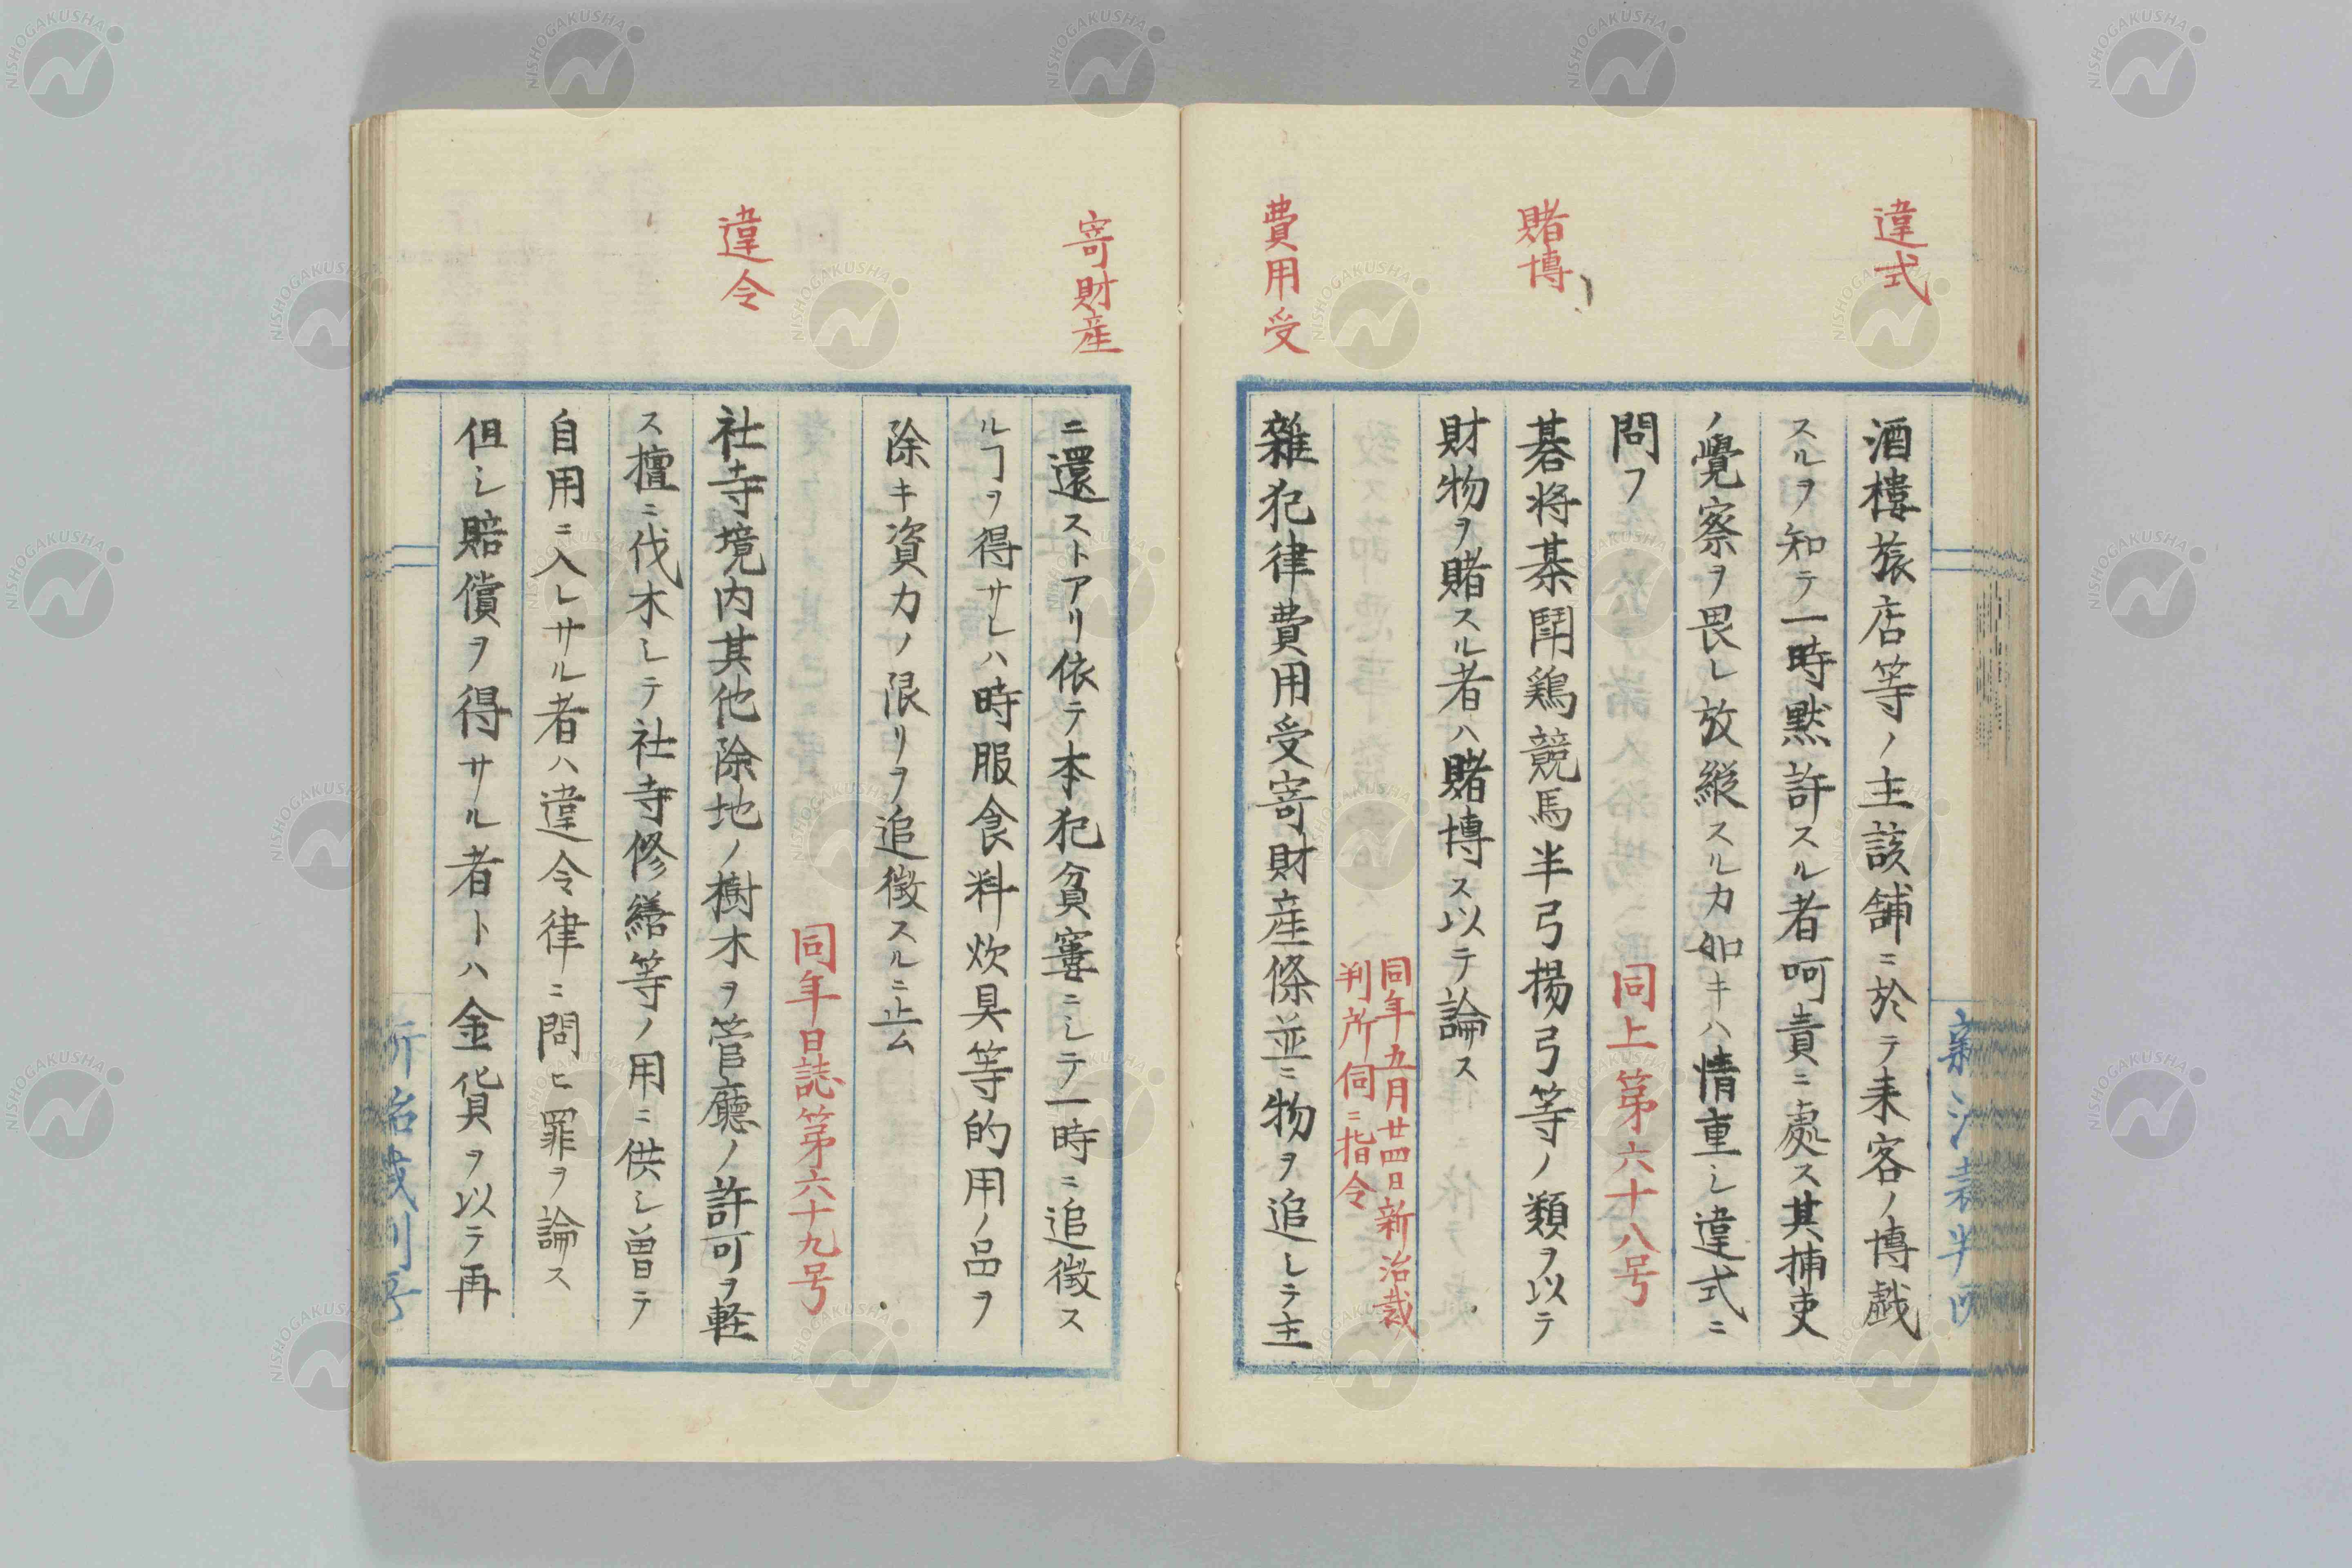 違式
酒樓旅店等ノ主該舗ニ於テ耒客ノ博戯
スルヲ知テ一時黙許スル者呵責ニ處ス其捕吏
ノ覺察ヲ畏レ放縦スルカ如キハ情重シ違式ニ
問フ
同上第六十八号
賭博
碁将棊鬪鶏競馬半弓揚弓等ノ類ヲ以テ
財物ヲ賭スル者ハ賭博ス以テ論ス
同年五月廿四日新治裁
判所伺ニ指令
費用受
雜犯律費用受寄財産條並ニ物ヲ追シテ主
寄財産
ニ還ストアリ依テ本犯貧窶ニシテ一時ニ追徴ス
ルヿヲ得サレハ時服食料炊具等的用ノ品ヲ
除キ資力ノ限リヲ追徴スルニ止ム
同年日誌第六十九号
違令
社寺境内其他除地ノ樹木ヲ管廳ノ許可ヲ軽
ス擅ニ伐木シテ社寺修繕等ノ用ニ供シ曽テ
自用ニ入レサル者ハ違令律ニ問ヒ罪ヲ論ス
但シ賠償ヲ得サル者トハ金貨ヲ以テ再
NISHOGAKUSHA